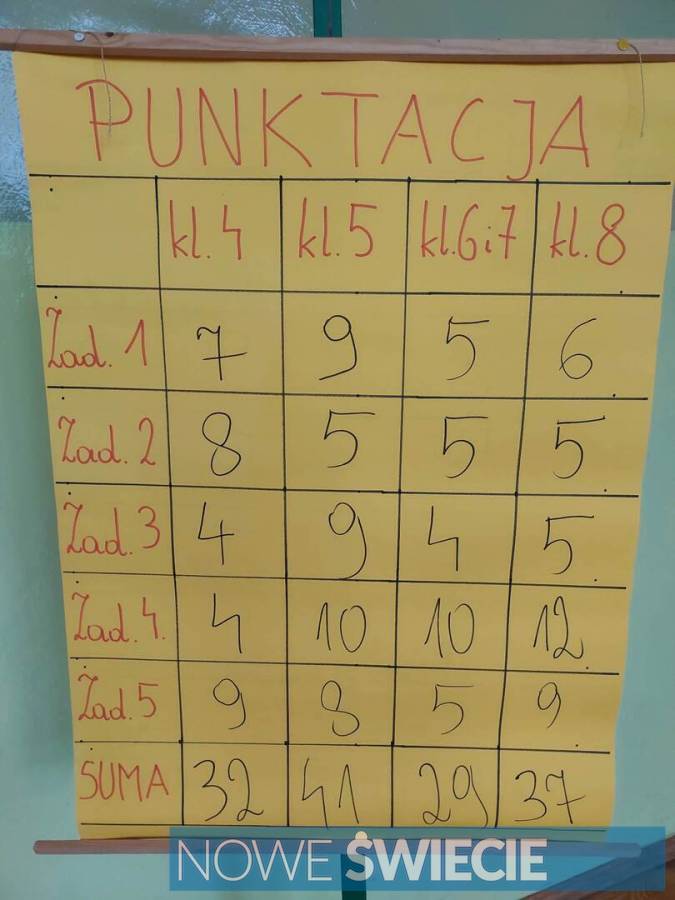 PUNKTACJA
kl. 4 kl. 5 kl. 6 i 7 kl. 8
Zad. 1 7 9 5 6
Zad. 2 8 5 5 5
Zad. 3 4 9 4 5
Zad. 4. 4 10 10 12
Zad. 5 9 8 5 9
SUMA 32 41 29 37
NOWE ŚWIECIE